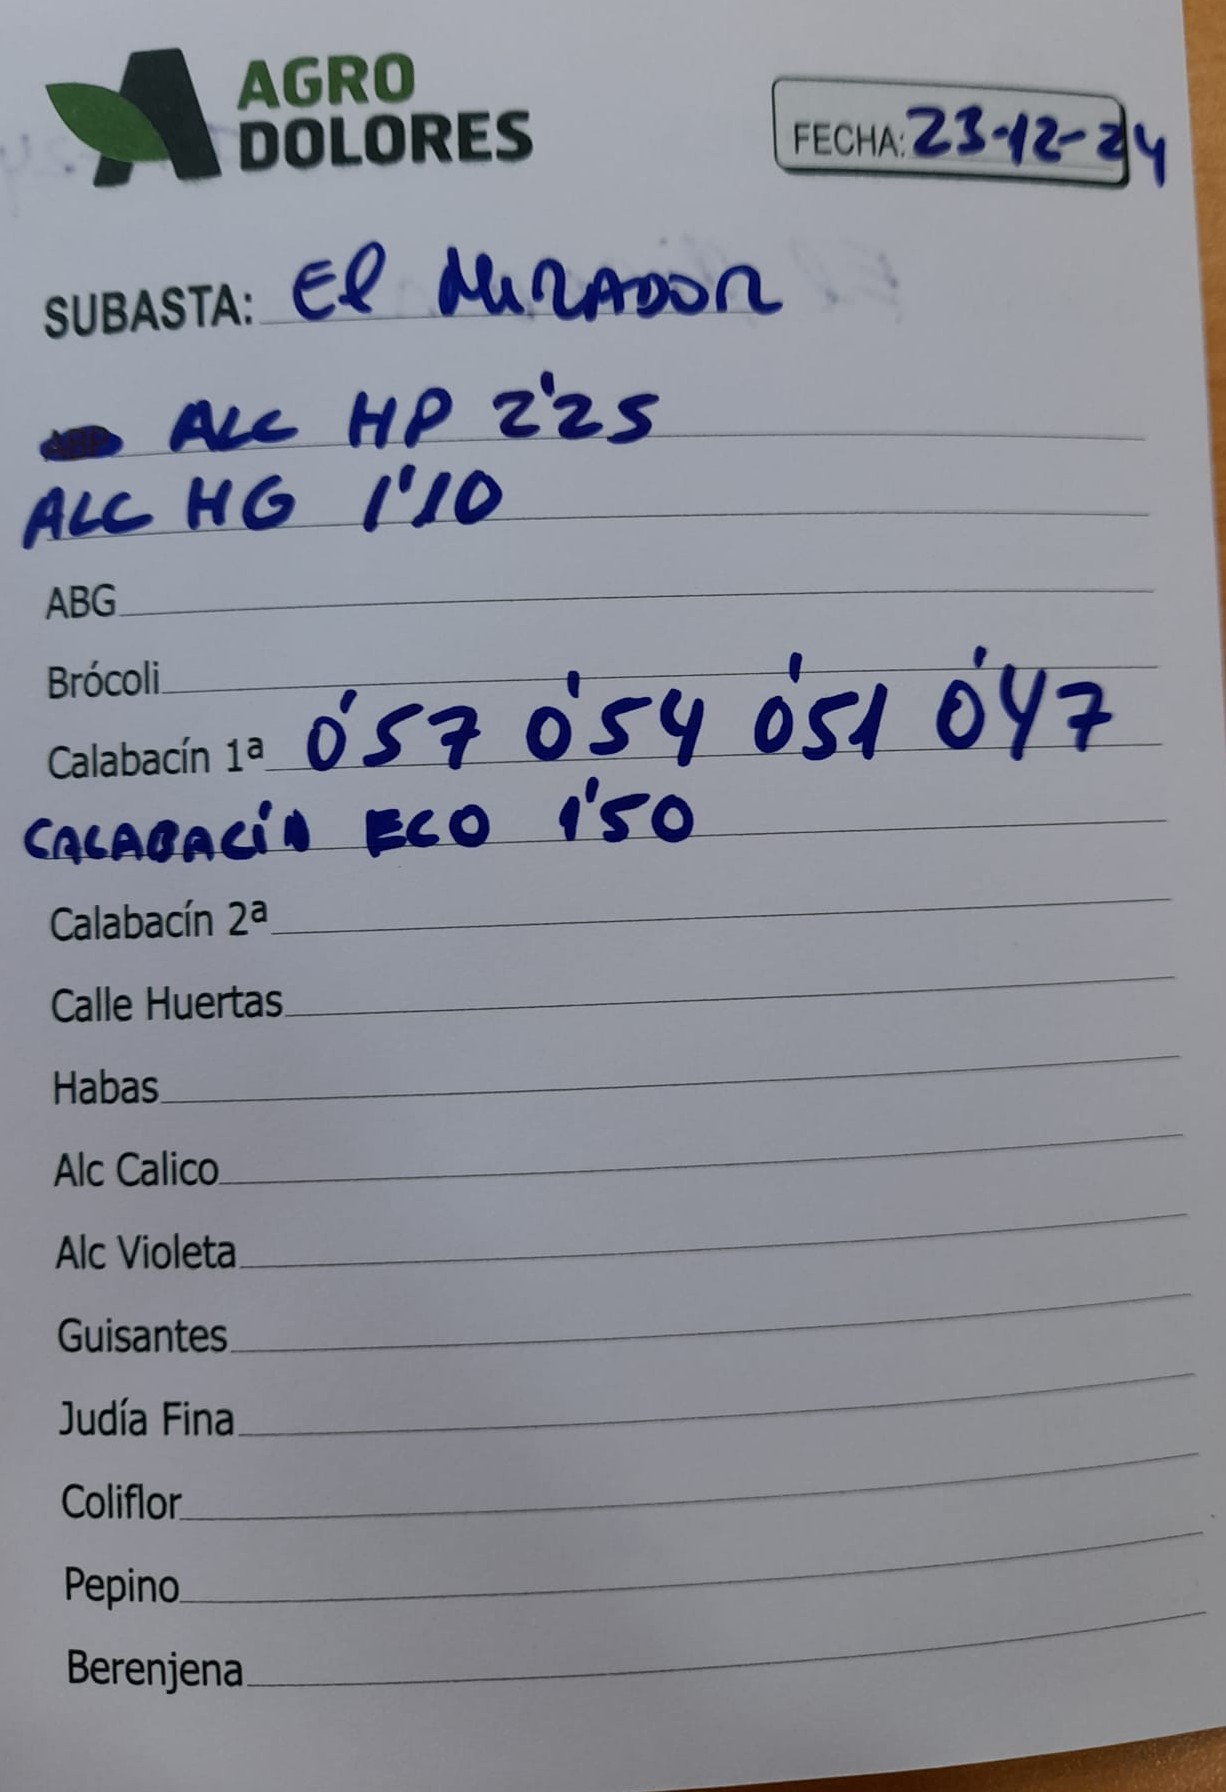 AGRO
DOLORES
FECHA: 23-12-24
SUBASTA: El MIRADOR
ALC HP 2'25
ALC HG 1'10
ABG
Brócoli
Calabacín 1ª 0'57 0'54 0'51 0'47
CALABACÍN ECO 1'50
Calabacín 2ª
Calle Huertas
Habas
Alc Calico
Alc Violeta
Guisantes
Judía Fina
Coliflor
Pepino
Berenjena